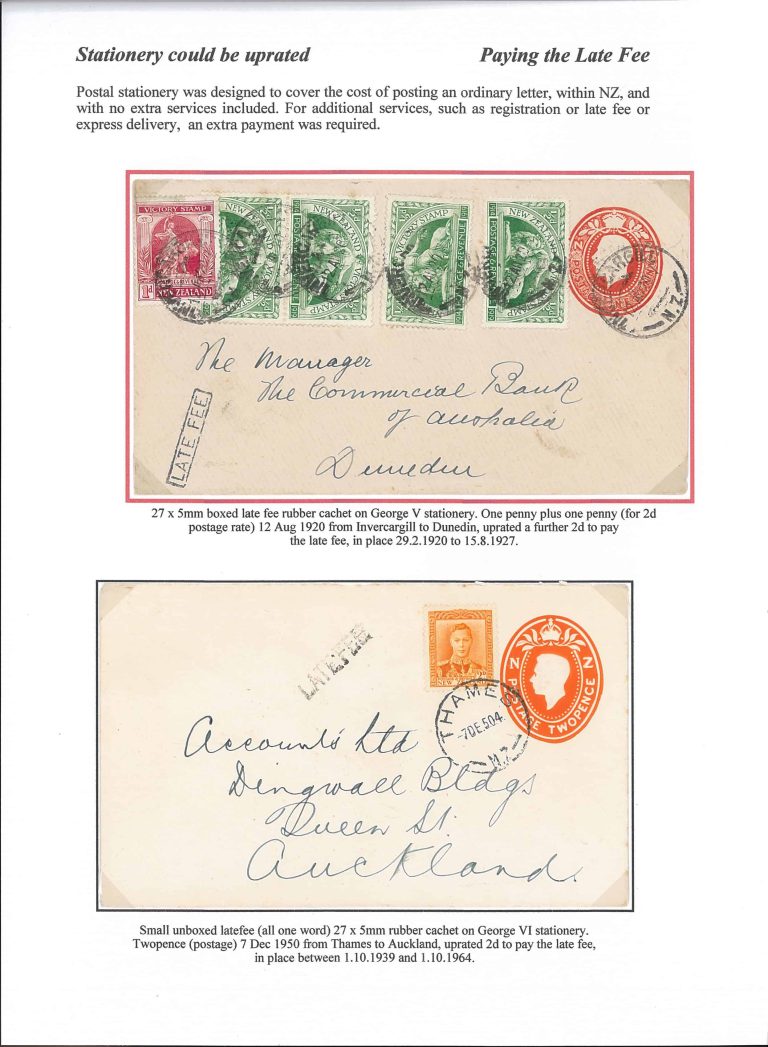 Stationery could be uprated Paying the Late Fee
Postal stationery was designed to cover the cost of posting an ordinary letter, within NZ, and
with no extra services included. For additional services, such as registration or late fee or
express delivery, an extra payment was required.
VICTORY STAMP
1d
NEW ZEALAND
VICTORY STAMP
NEW ZEALAND
LATE FEE
The Manager
The Commercial Bank
of Australia
Dunedin
27 x 5mm boxed late fee rubber cachet on George V stationery. One penny plus one penny (for 2d
postage rate) 12 Aug 1920 from Invercargill to Dunedin, uprated a further 2d to pay
the late fee, in place 29.2.1920 to 15.8.1927.
LATEFEE
NEW ZEALAND
NZ
POSTAGE TWOPENCE
THAMES
-7DE504
N.Z
Accounts Ltd
Dingwall Bldgs
Queen St.
Auckland.
Small unboxed latefee (all one word) 27 x 5mm rubber cachet on George VI stationery.
Twopence (postage) 7 Dec 1950 from Thames to Auckland, uprated 2d to pay the late fee,
in place between 1.10.1939 and 1.10.1964.